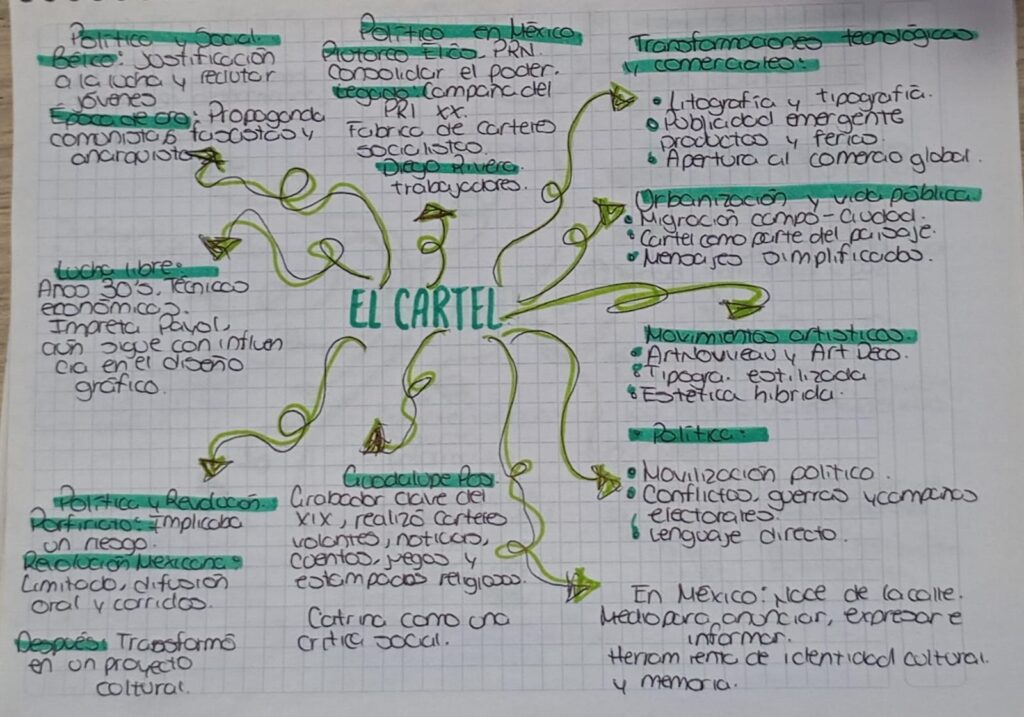 Político y Social.
Bélico: Justificación
a la lucha y reclutar
jóvenes
Epoca de oro: Propaganda
comunistas fascistas y
anarquista
Político en México
Plutarco Elías. PRN.
Consolidar el poder.
Legado: Campaña del
PRI XX.
Fabrica de carteles
socialistas.
Diego Rivera.
trabajadores.
Transformaciones tecnológicas
y comerciales:
Litografía y tipografía.
Publicidad emergente
productos y ferias.
Apertura al comercio global.
Urbanización y vida pública.
Migración campo-ciudad.
Cartel como parte del paisaje.
Mensajes simplificados.
Lucha libre:
Años 30's. Técnicas
económicas.
Impreta Payol,
aún sigue con influen
cia en el diseño
gráfico.
EL CARTEL
Movimientos artísticos.
Art Nouveau y Art Deco.
Tipogra. estilizada
Estética hibrida.
Política:
Movilización político.
Conflictos, guerras y campañas
electorales.
Lenguaje directo.
Política y Revolución.
Porfiriato: Implicaba
un riesgo.
Revolución Mexicana:
Limitado, difusión
oral y corridos.
Después: Transformó
en un proyecto
coltural.
Guadalupe Pos.
Grabador clave del
XIX, realizó carteles
volantes, noticias,
cuentos, juegos y
estampados religiosos.
Catrina como una
critica social.
En México: Nace de la calle.
Medio para anunciar, expresar e
informar.
Herramienta de identidad cultural.
y memoria.